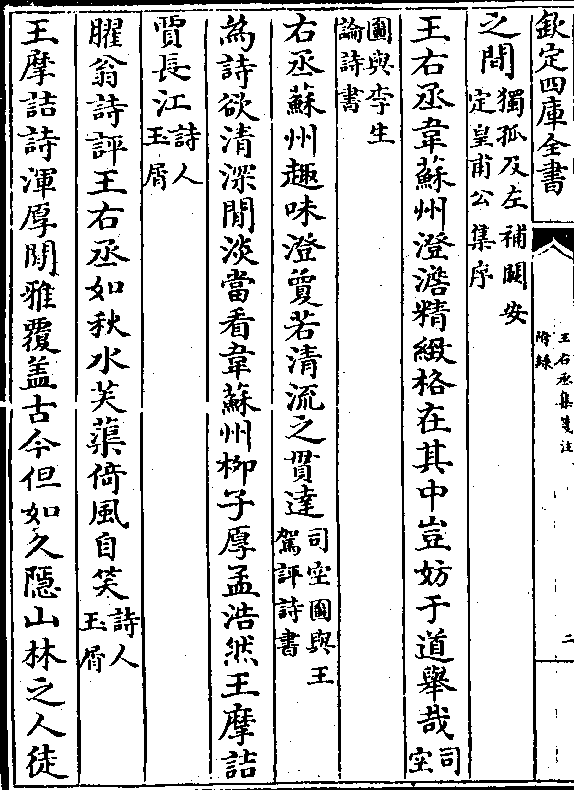 欽定四庫全書
王右丞集箋注
附録
二
之間獨孤及左補闕安
定皇甫公集序
王右丞韋蘇州澄澹精緻格在其中豈妨于道舉哉司空
圖與李生
論詩書
右丞蘇州趣味澄敻若清流之貫達司空圖與王
駕評詩書
為詩欲清深閒淡當看韋蘇州柳子厚孟浩然王摩詰
賈長江詩人
玉屑
臞翁詩評王右丞如秋水芙蕖倚風自笑詩人
玉屑
王摩詰詩渾厚閒雅覆蓋古今但如久隱山林之人徒